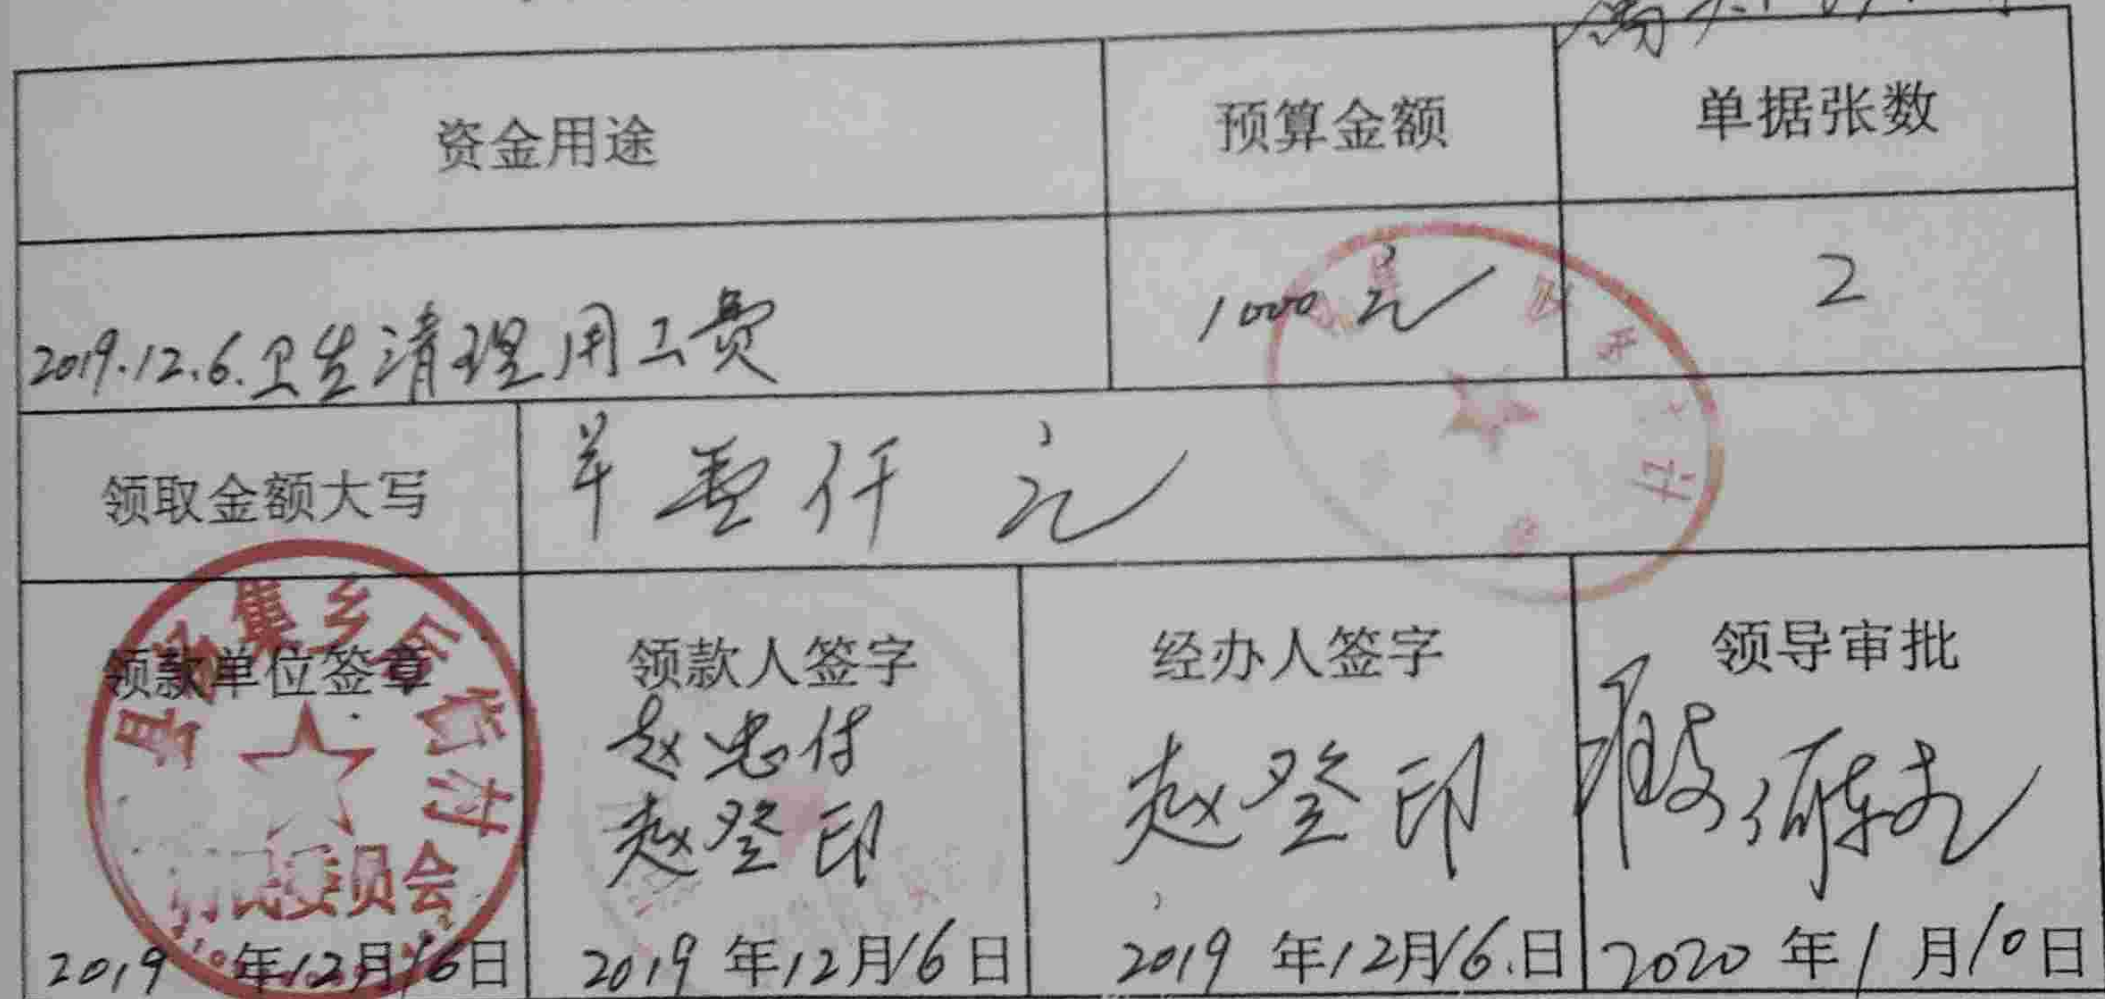 资金用途
预算金额
单据张数
2019.12.6.卫生清理用工费
1000元
2
领取金额大写
壹仟 元
领款单位签章
领款人签字
经办人签字
领导审批
赵忠付
赵登印
赵登印
集乡
村
委员会
2019 年12月16日
2019 年12月16日
2019 年12月16.日
2020 年1月10日